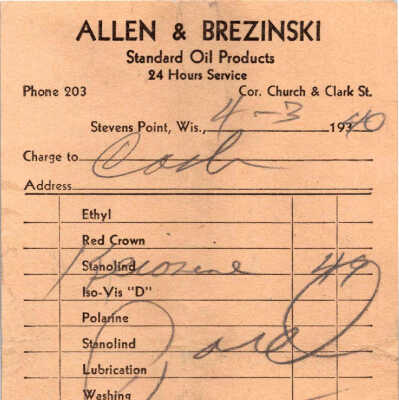 ALLEN & BREZINSKI
Standard Oil Products
24 Hours Service
Phone 203 Cor. Church & Clark St.
Stevens Point, Wis., 4-3 1940
Charge to Cash
Address
Ethyl
Red Crown
Stanolind Kerosene 49
Iso-Vis "D"
Polarine
Stanolind Paid
Lubrication
Washing